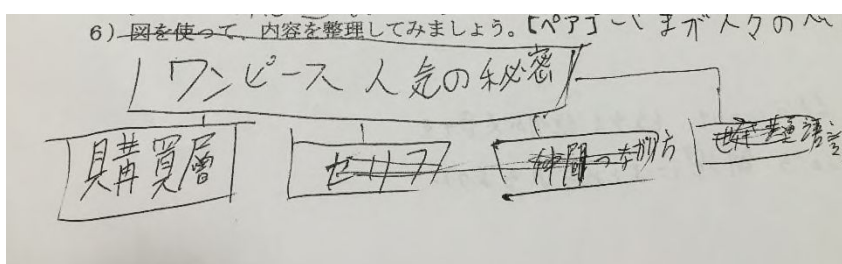 6) 図を使って、内容を整理してみましょう。【ペア】
ワンピース 人気の秘密
購買層
セリフ
仲間つながり方